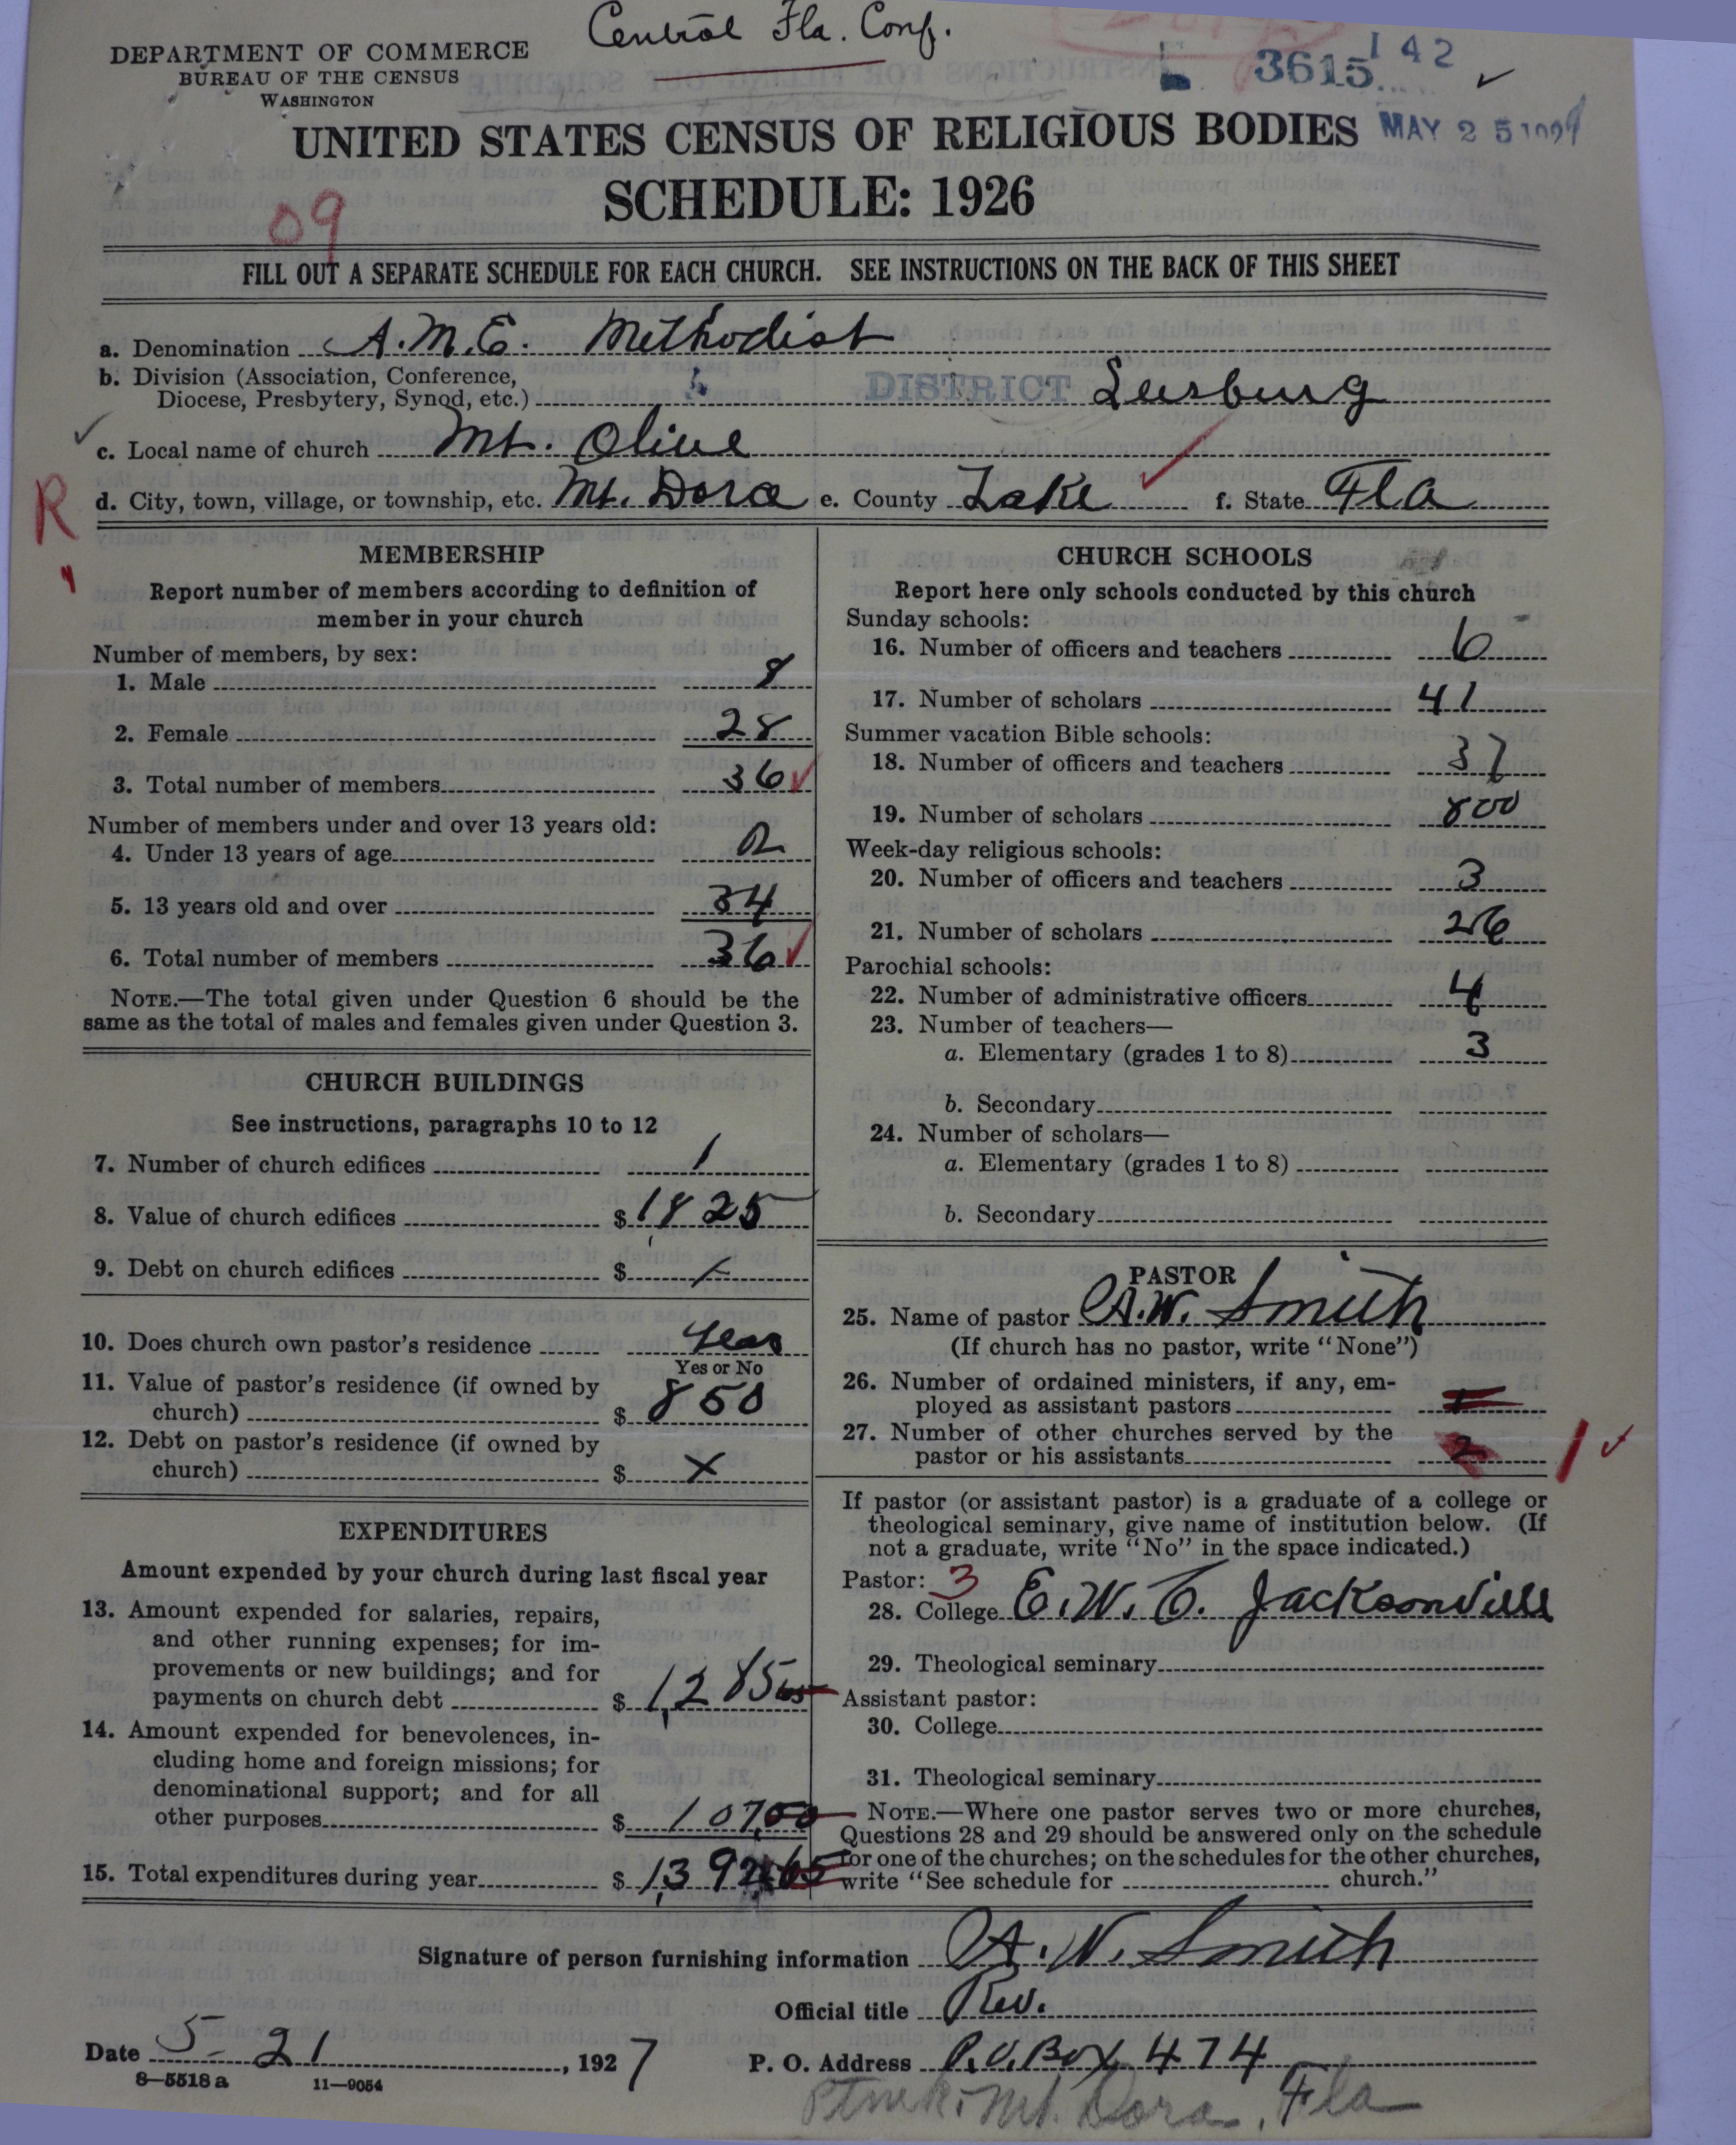 Central Fla. Conf.
DEPARTMENT OF COMMERCE
BUREAU OF THE CENSUS
WASHINGTON
3615 142
UNITED STATES CENSUS OF RELIGIOUS BODIES MAY 25
SCHEDULE: 1926
09
FILL OUT A SEPARATE SCHEDULE FOR EACH CHURCH. SEE INSTRUCTIONS ON THE BACK OF THIS SHEET
a. Denomination A.M.E. Methodist
b. Division (Association, Conference,
Diocese, Presbytery, Synod, etc.) DISTRICT Leesburg
c. Local name of church Mt. Olive
d. City, town, village, or township, etc. Mt. Dora e. County Lake f. State Fla
R
MEMBERSHIP
Report number of members according to definition of
member in your church
Number of members, by sex:
1. Male 8
2. Female 28
3. Total number of members 36
Number of members under and over 13 years old:
4. Under 13 years of age 2
5. 13 years old and over 34
6. Total number of members 36
NOTE.—The total given under Question 6 should be the
same as the total of males and females given under Question 3.
CHURCH BUILDINGS
See instructions, paragraphs 10 to 12
7. Number of church edifices 1
8. Value of church edifices $ 1,825
9. Debt on church edifices $
10. Does church own pastor's residence
Yes or No
11. Value of pastor's residence (if owned by
church) $ 850
12. Debt on pastor's residence (if owned by
church) $ X
EXPENDITURES
Amount expended by your church during last fiscal year
13. Amount expended for salaries, repairs,
and other running expenses; for im-
provements or new buildings; and for
payments on church debt $ 1,285
14. Amount expended for benevolences, in-
cluding home and foreign missions; for
denominational support; and for all
other purposes $ 107.00
15. Total expenditures during year $ 1,392
CHURCH SCHOOLS
Report here only schools conducted by this church
Sunday schools:
16. Number of officers and teachers 6
17. Number of scholars 41
Summer vacation Bible schools:
18. Number of officers and teachers 37
19. Number of scholars 800
Week-day religious schools:
20. Number of officers and teachers 3
21. Number of scholars 26
Parochial schools:
22. Number of administrative officers 4
23. Number of teachers—
a. Elementary (grades 1 to 8) 3
b. Secondary
24. Number of scholars—
a. Elementary (grades 1 to 8)
b. Secondary
PASTOR
25. Name of pastor A.W. Smith
(If church has no pastor, write "None")
26. Number of ordained ministers, if any, em-
ployed as assistant pastors
27. Number of other churches served by the
pastor or his assistants 2 1
If pastor (or assistant pastor) is a graduate of a college or
theological seminary, give name of institution below. (If
not a graduate, write "No" in the space indicated.)
Pastor: 3
28. College E.W.C. Jacksonville
29. Theological seminary
Assistant pastor:
30. College
31. Theological seminary
NOTE.—Where one pastor serves two or more churches,
Questions 28 and 29 should be answered only on the schedule
for one of the churches; on the schedules for the other churches,
write "See schedule for church."
Signature of person furnishing information A. W. Smith
Official title Rev.
Date 5-21, 1927 P. O. Address P.O. Box 474
8—5518 a 11—9054
Mt. Dora, Fla